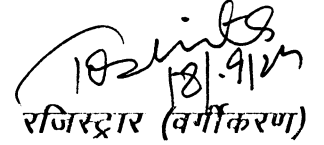 18/.9/24
रजिस्ट्रार (वर्गीकरण)